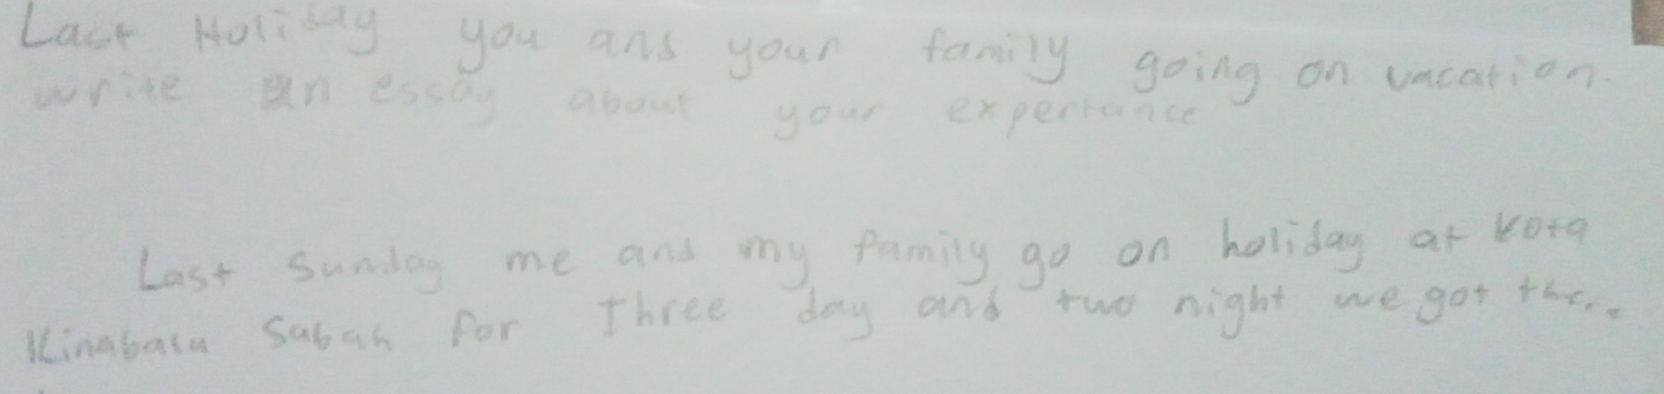 Last Holiday you and your family going on vacation.
write an essay about your experiance
Last Sunday me and my family go on holiday at Kota
Kinabalu Sabah for Three day and two night we got there